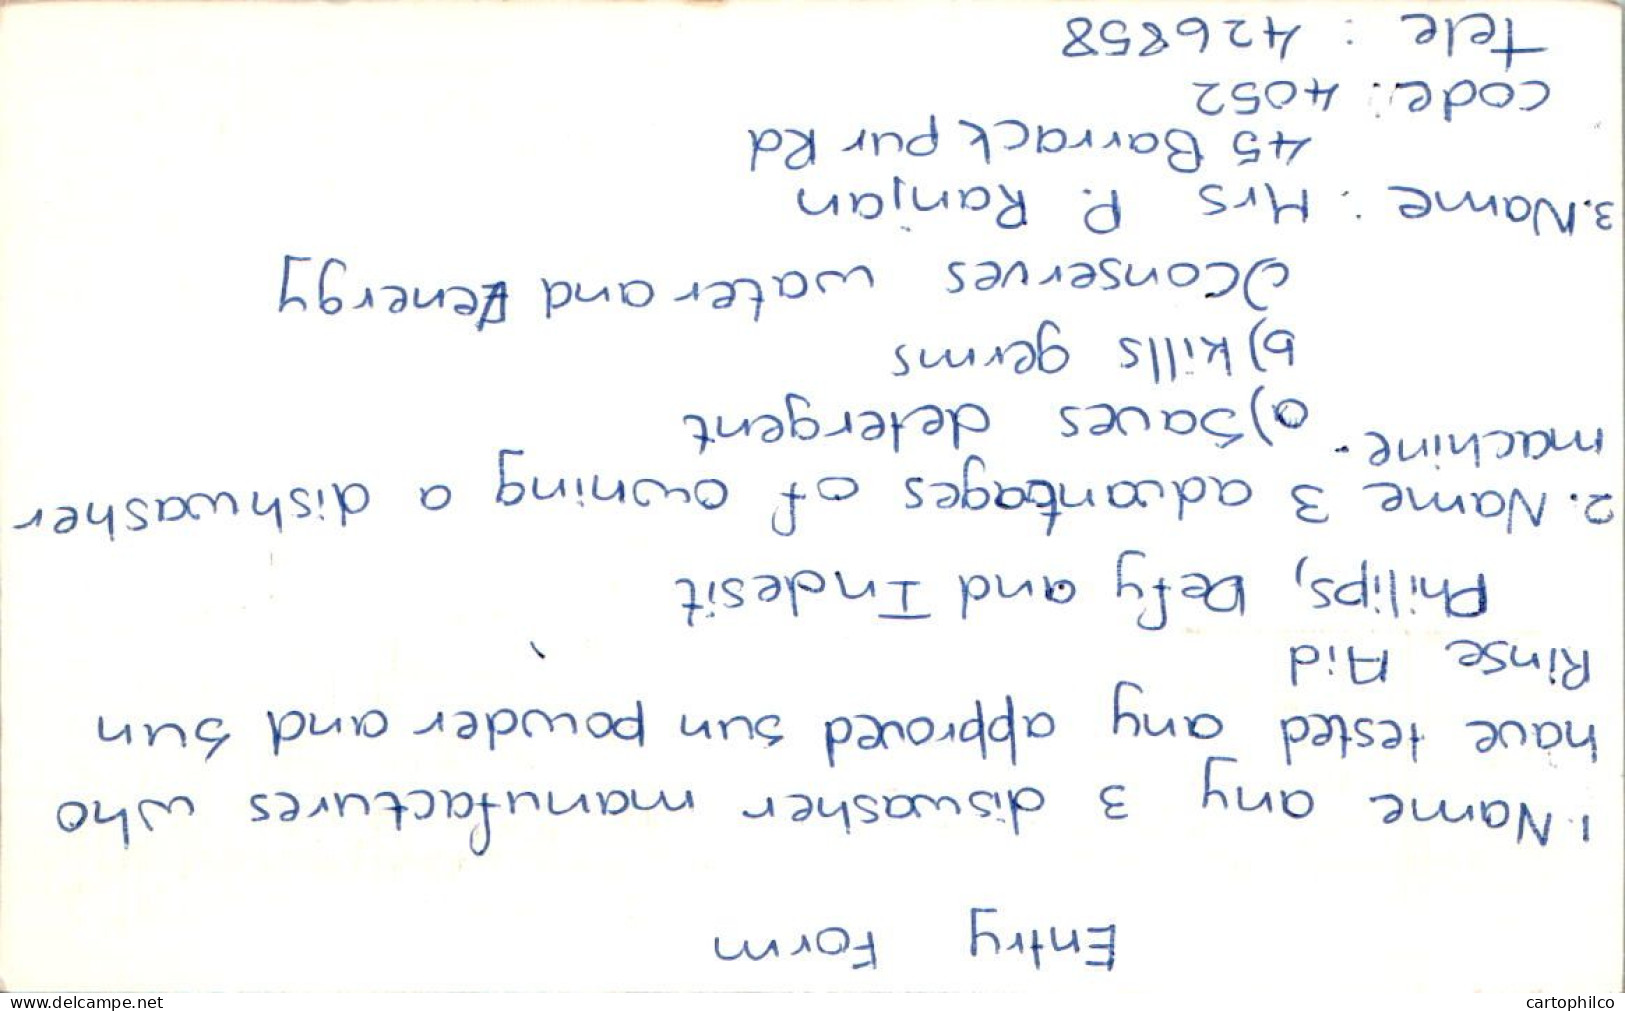 Entry Form
1. Name any 3 diswasher manufactures who
have tested any approved sun powder and Sun
Rinse Aid
Philips, Defy and Indesit
2. Name 3 advantages of owning a dishwasher
machine.
a) Saves detergent
b) kills germs
c) conserves water and energy
3. Name : Mrs P. Ranjan
45 Barrackpur Rd
code: 4052
Tele : 426858
www.delcampe.net
cartophilco